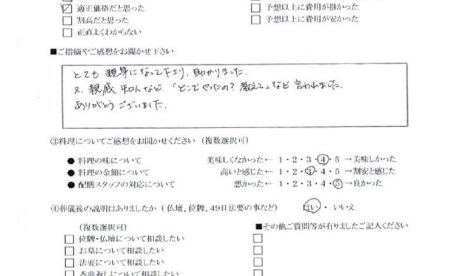 ☑ 適正価格だと思った □ 予想以上に費用が掛かった
□ 割高だと思った □ 予想以上に費用が安かった
□ 正直よくわからない
■ご指摘やご感想をお聞かせ下さい
とても 親身になって下さり、助かりました。
又、親戚 「どこでやったの? 教えて」など 言われました。
ありがとう ございました。
③料理についてご感想をお聞かせください(複数選択可)
● 料理の味について 美味しくなかった ← 1・2・3・4・5 → 美味しかった
● 料理の金額について 高いと感じた ← 1・2・3・4・5 → 割安と感じた
● 配膳スタッフの対応について 悪かった ← 1・2・3・4・5 → 良かった
④葬儀後の説明はありましたか(仏壇、位牌、49日法要の事など) はい・いいえ
(複数選択可) ■その他ご質問等が有りましたご記入ください
□ 位牌・仏壇について相談したい
□ お墓について相談したい
□ 法要について相談したい
□ 香典返しについて相談したい